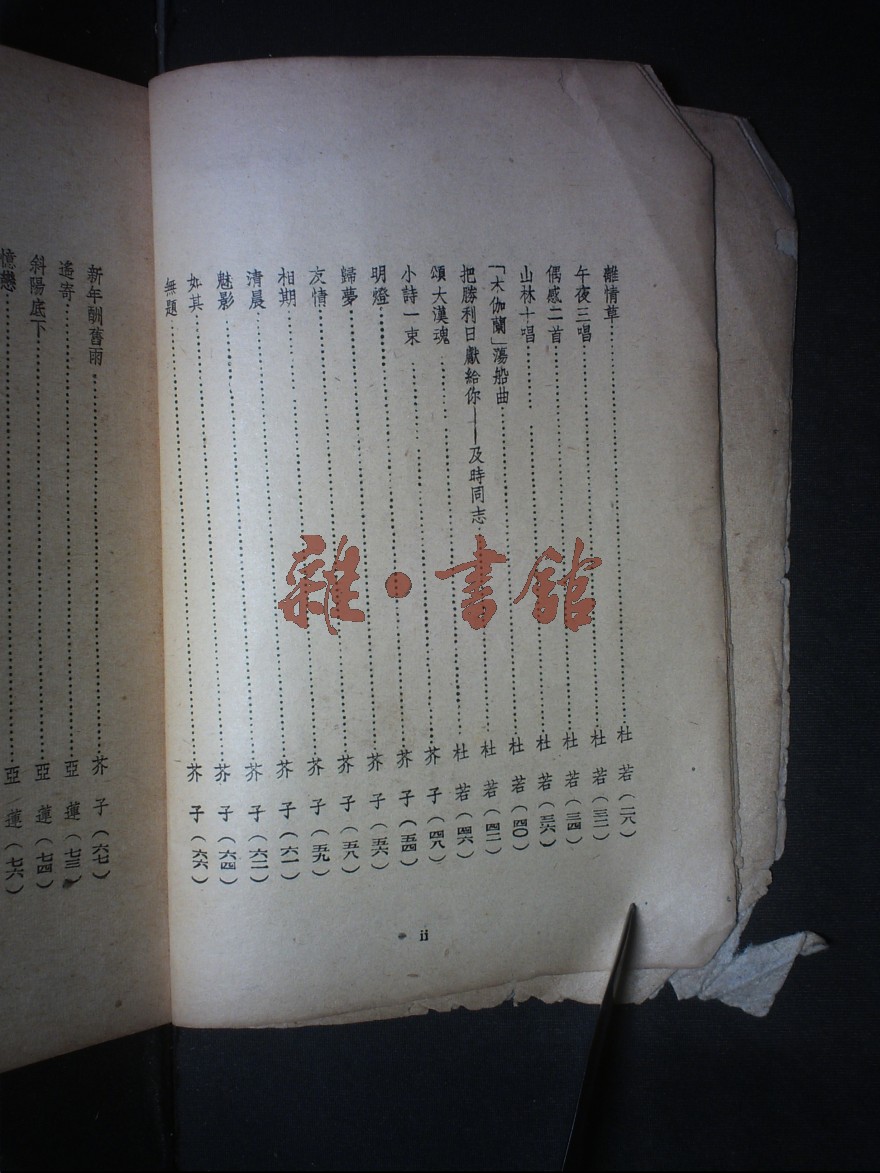 離情草……杜若(二八)
午夜三唱……杜若(三二)
偶感二首……杜若(三四)
山林十唱……杜若(三六)
「木伽蘭」蕩船曲……杜若(四〇)
把勝利日獻給你——及時同志……杜若(四二)
頌大漢魂……杜若(四六)
小詩一束……芥子(四八)
明燈……芥子(五四)
歸夢……芥子(五六)
友情……芥子(五八)
相期……芥子(五九)
清晨……芥子(六一)
魅影……芥子(六二)
如其……芥子(六四)
無題……芥子(六六)
ii
新年酬舊雨……芥子(六七)
遙寄……亞蓮(七三)
斜陽底下……亞蓮(七四)
憶戀……亞蓮(七六)
雜·書館